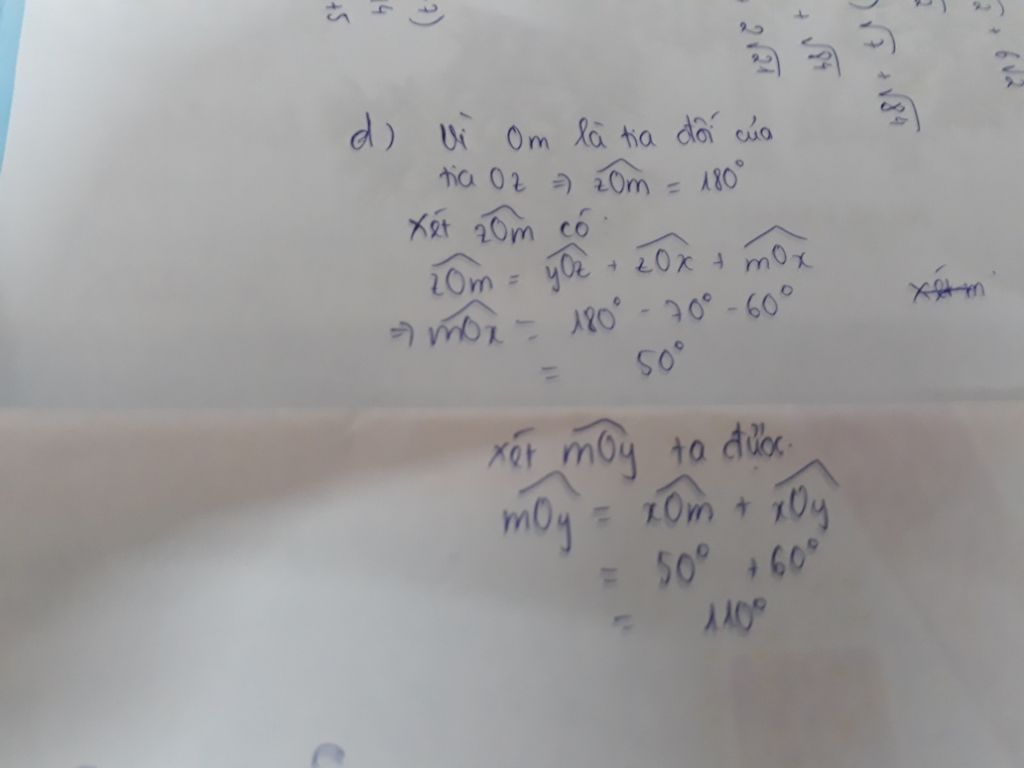 d) Vì Om là tia đối của
tia Oz ⇒ zOm = 180°
Xét zOm có:
zOm = yOz + zOx + mOx
⇒ mOx = 180° - 70° - 60°
= 50°
xét m
xét mOy ta được.
mOy = xOm + xOy
= 50° + 60°
= 110°
+5
2√21
+ √84
√7 + √84
+ 6√2